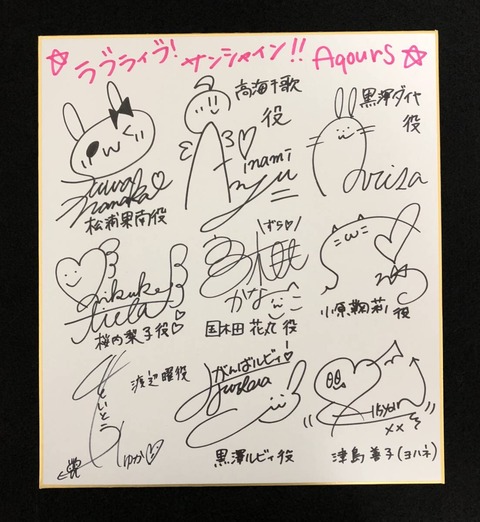 ☆ラブライブ!サンシャイン!! Aqours☆
松浦果南役
高海千歌
役
inami
黒澤ダイヤ
役
Arisa
桜内梨子役♡
ずら♡
かな
国木田 花丸 役
小原鞠莉役
渡辺曜役
さいとう
しゅか♡
がんばルビィ!
黒澤ルビィ役
津島善子(ヨハネ)